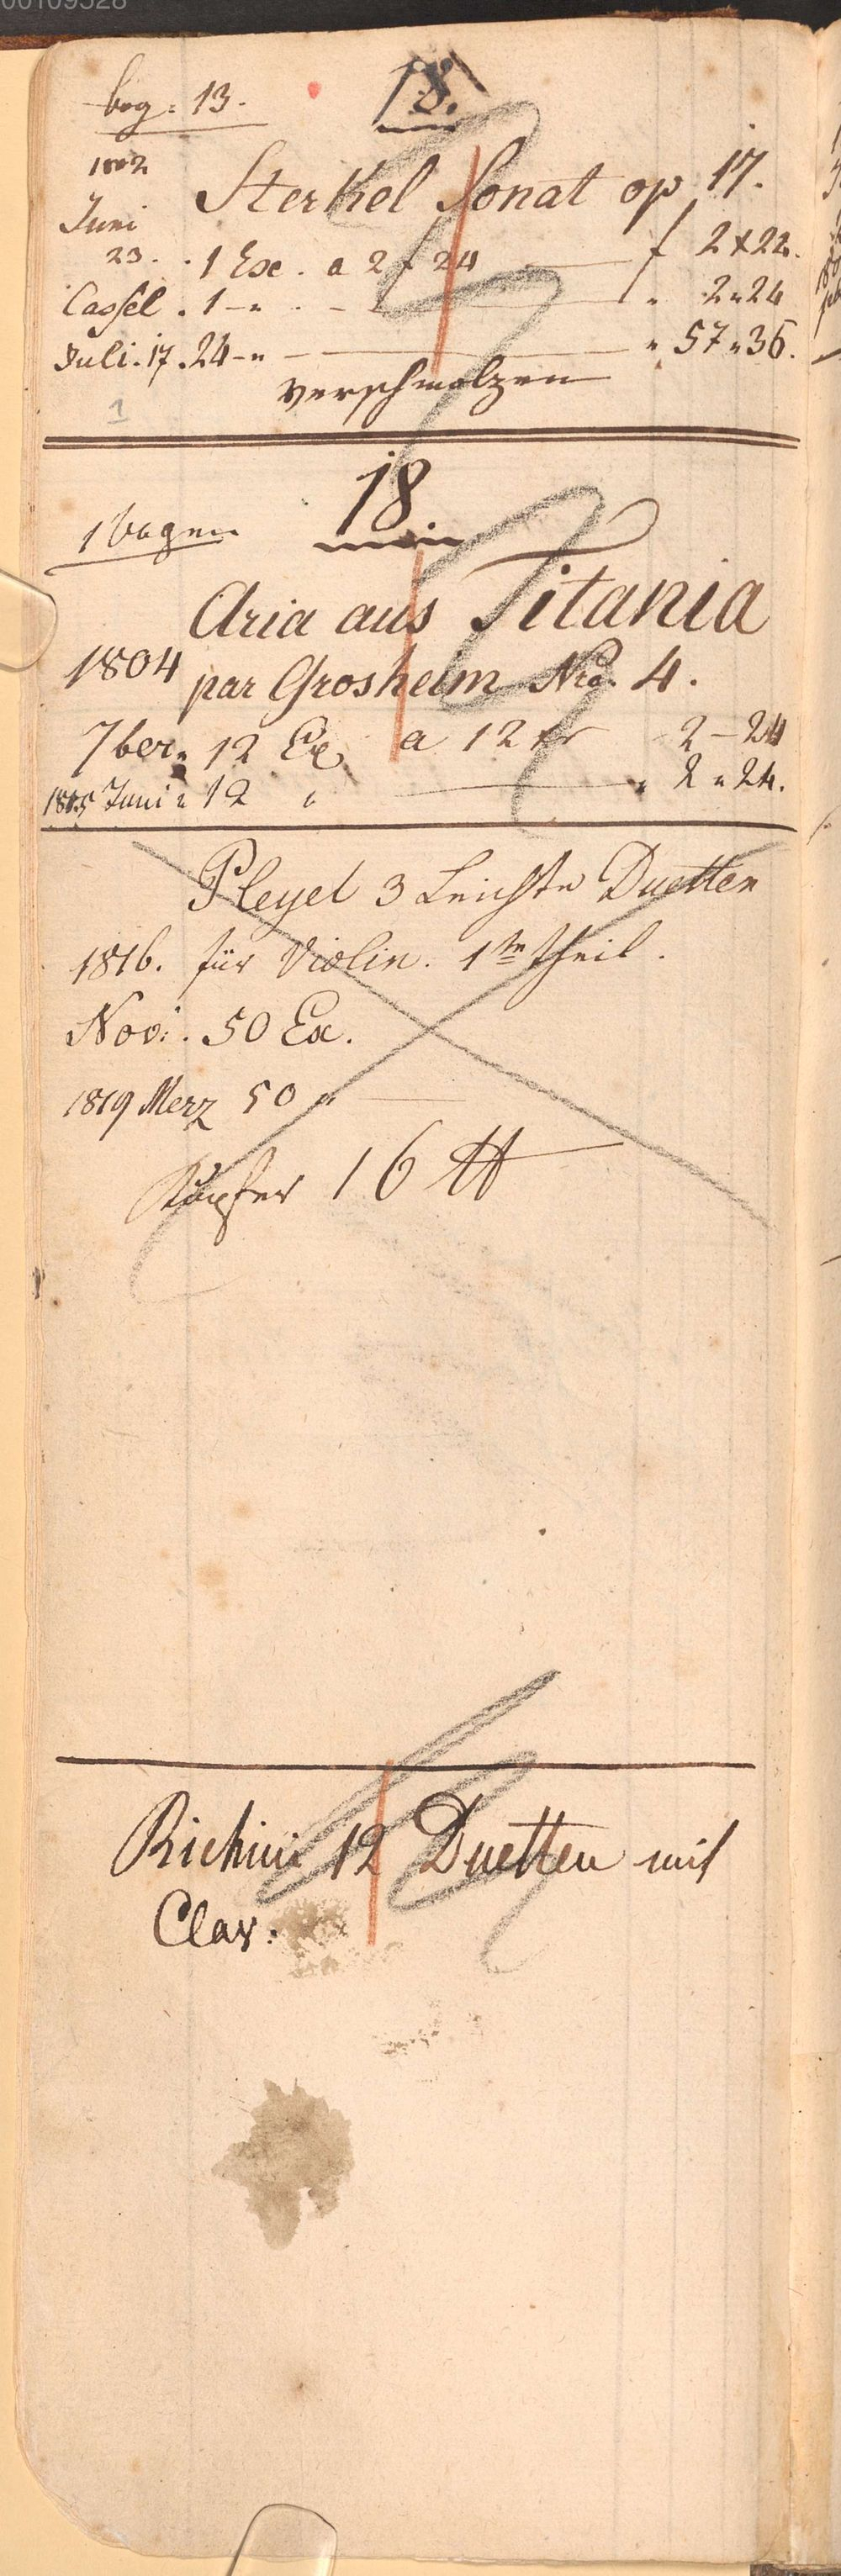 bog: 13.
18.
1802
Sterkel Sonat op 17.
Juni
23. . 1 Exe. a 2 f 24 — f 2 x 22.
Cassel . 1 – „ . – — „ 2 „ 24
Juli. 17 . 24 – „ — „ 57 „ 36.
verschmolzen
1
18
1 bogen
Aria aus Titania
1804 par Grosheim Nro. 4.
7ber. 12 Ex a 12 xr 2 – 24
1805 Juni „ 12 „ — „ 2 „ 24.
Pleyel 3 Leichte Duetten
1816. für Violin. 1ter theil.
Nov: . 50 Ex.
1819 Merz 50 „ —
Kupfer 16 ℔
Richini 12 Duetten mit
Clav: